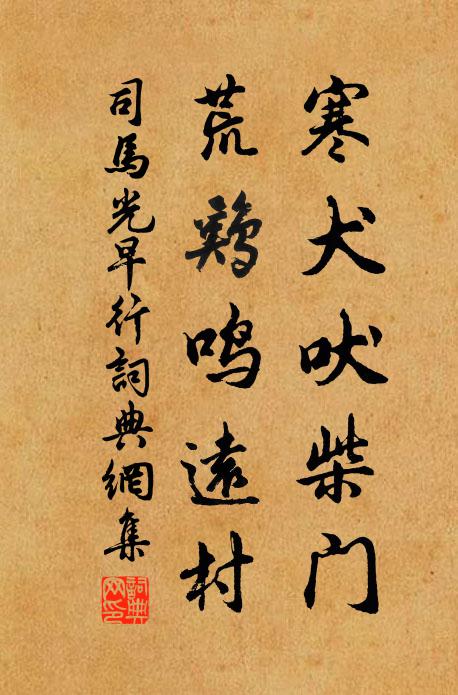 寒犬吠柴门
荒鸡鸣遠村
司馬光早行詞典網集
詞典网印